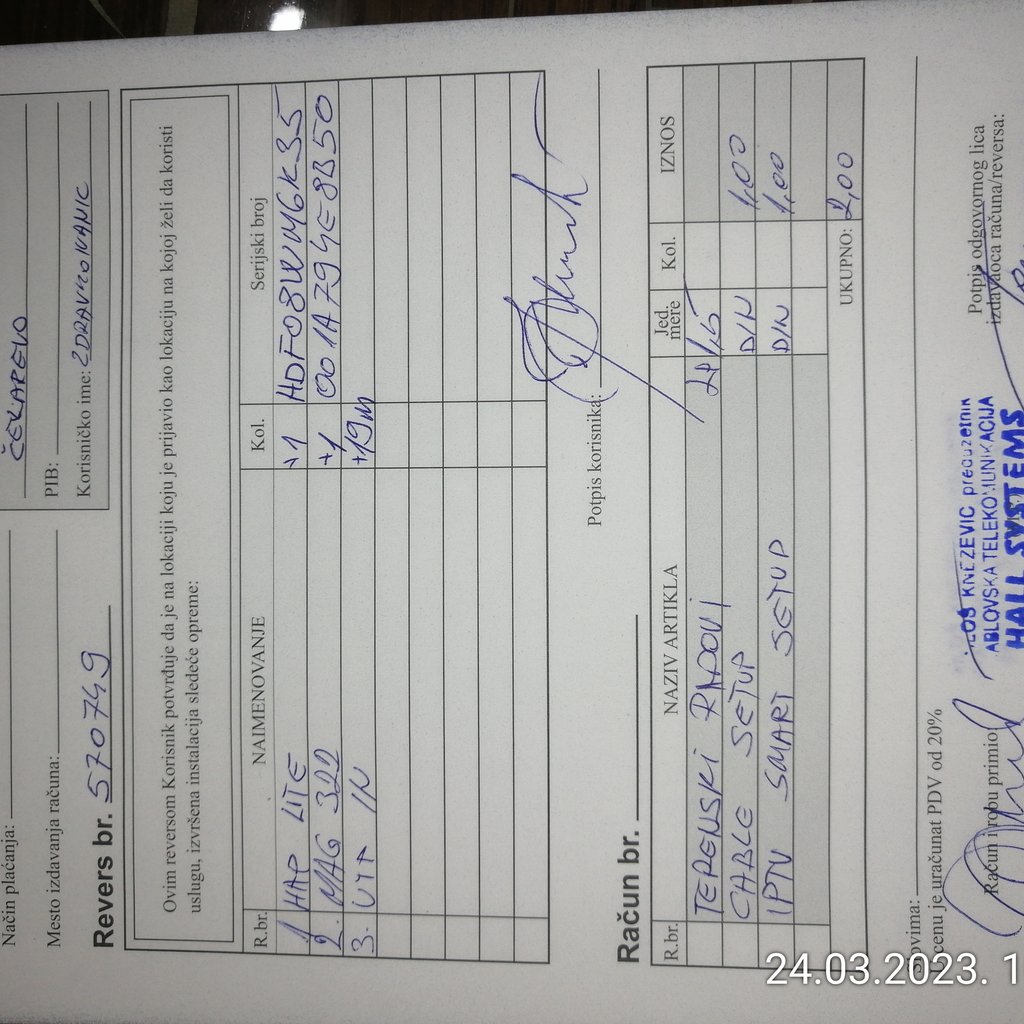 Način plaćanja:
Mesto izdavanja računa:
ČEKAREVO
PIB:
Korisničko ime: ZDRAVKOIVANIC
Revers br. 570749
Ovim reversom Korisnik potvrđuje da je na lokaciji koju je prijavio kao lokaciju na kojoj želi da koristi
uslugu, izvršena instalacija sledeće opreme:
R.br. NAIMENOVANJE Kol. Serijski broj
1 HAP LITE +1 HDF08WM6K35
2. MAG 322 +1 001A794E8B50
3. UTP IN +19m
Potpis korisnika:
Račun br.
R.br. NAZIV ARTIKLA Jed. mere Kol. IZNOS
TERENSKI RADOVI
CABLE SETUP DIN 1,00
IPTV SMART SETUP DIN 1,00
UKUPNO: 2,00
Slovima:
U cenu je uračunat PDV od 20%
Račun i robu primio
KNEZEVIC preduzetnik
ABLOVSKA TELEKOMUNIKACIJA
HALL SYSTEMS
Potpis odgovornog lica
izdavaoca računa/reversa:
24.03.2023. 1